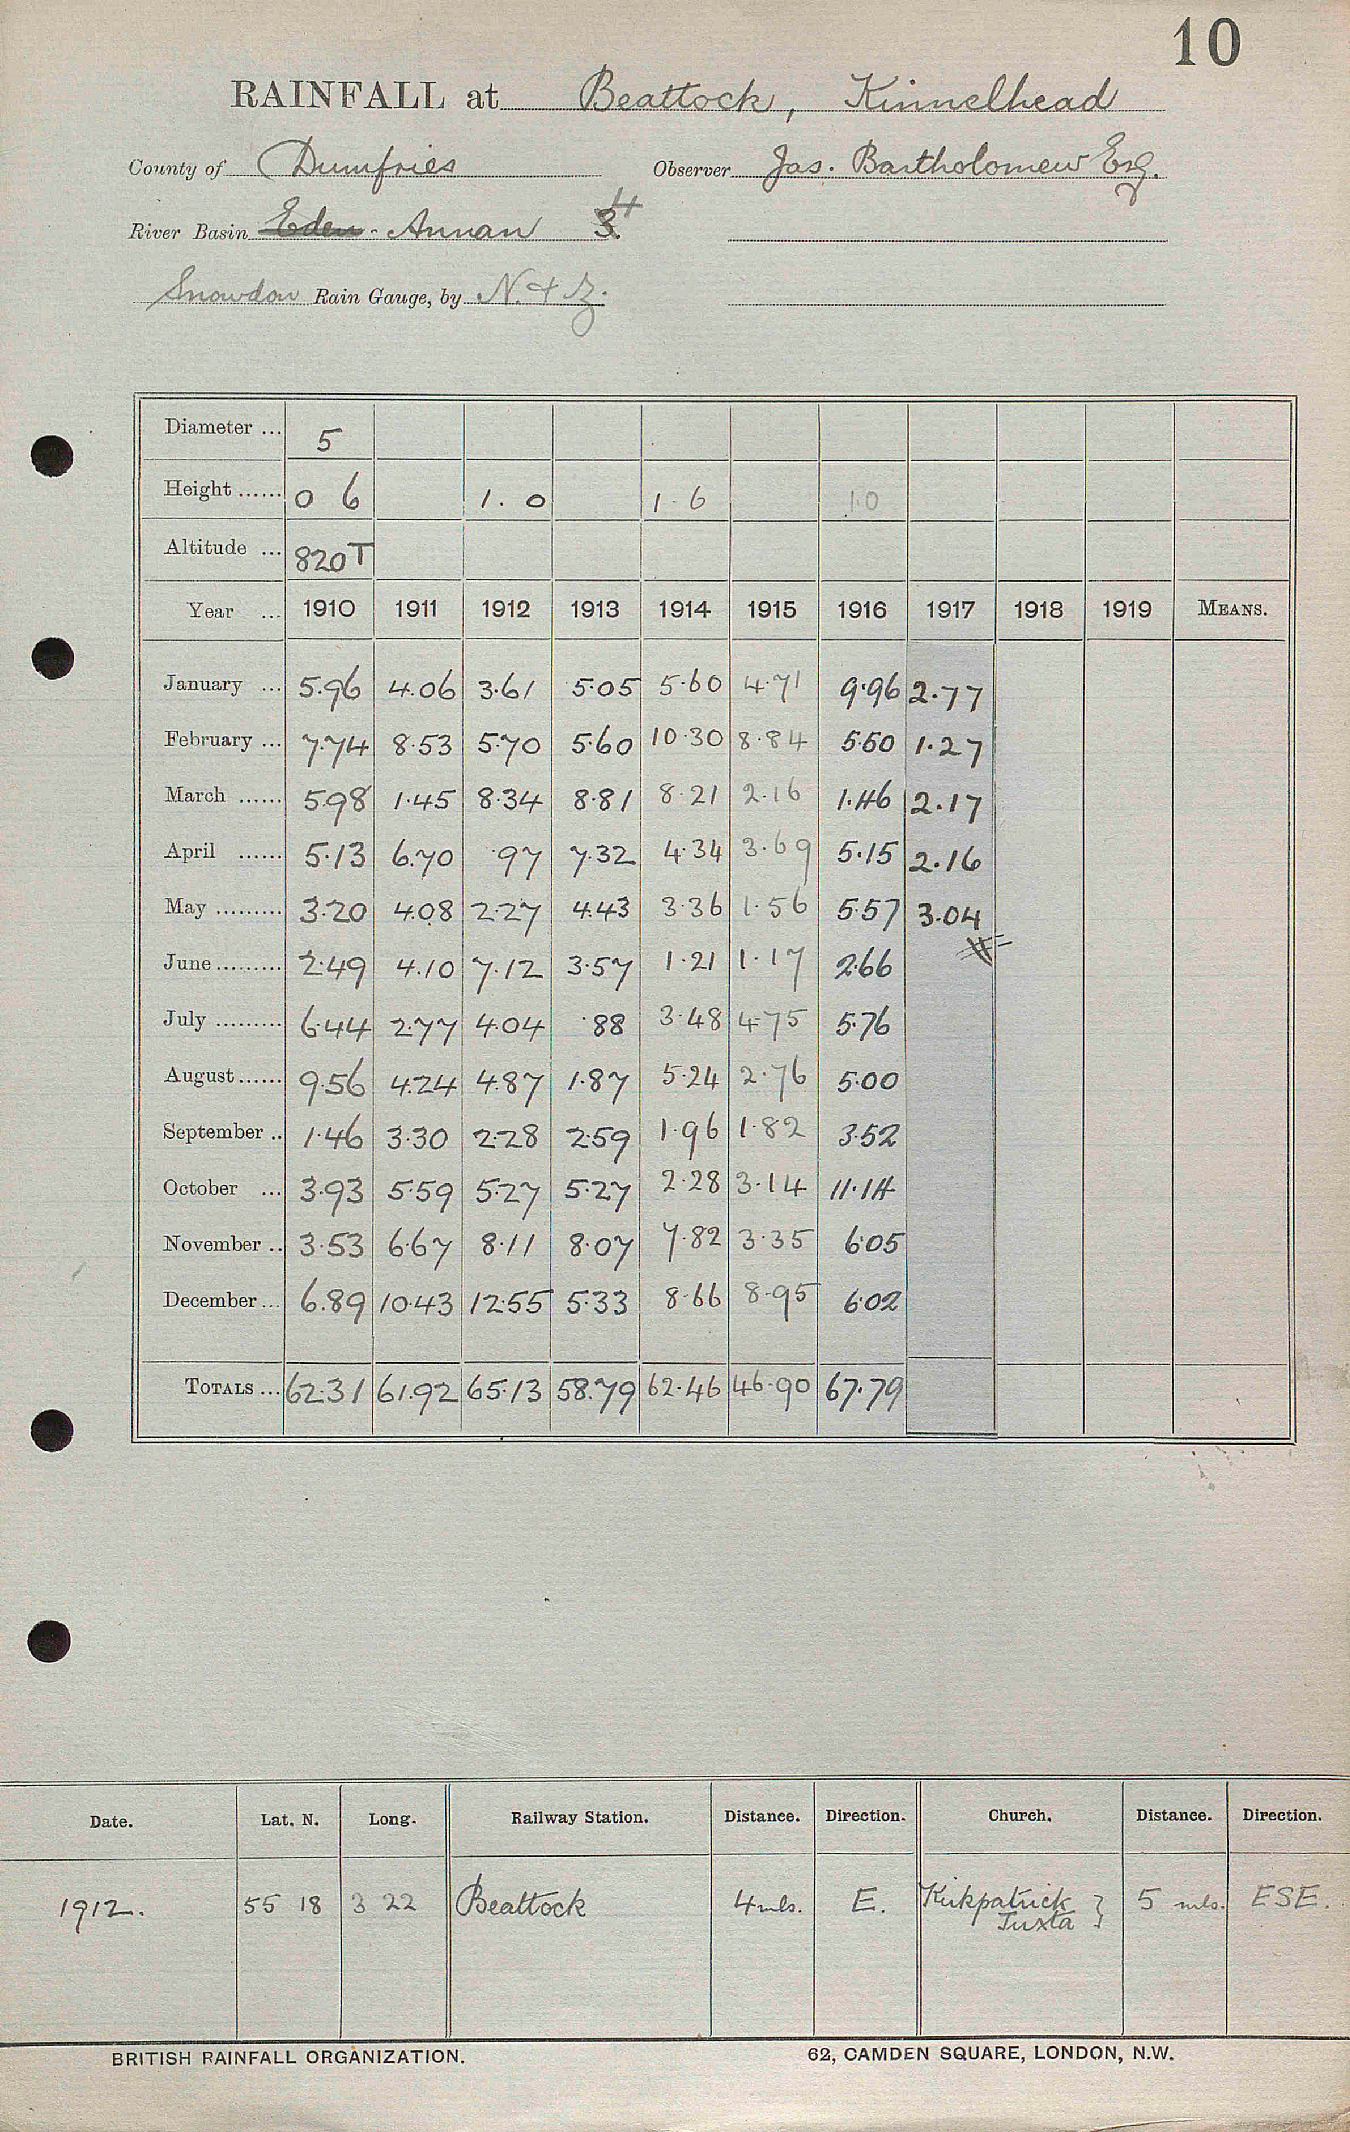 10
RAINFALL at Beattock, Kinnelhead
County of Dumfries Observer Jas. Bartholomew Esq.
River Basin Eden - Annan 3 4
Snowdon Rain Gauge, by N. & Z.
Diameter ... 5
Height ...... 0 6 1. 0 1 . 6 1.0
Altitude ... 820T
Year ... 1910 1911 1912 1913 1914 1915 1916 1917 1918 1919 MEANS.
January ... 5.96 4.06 3.61 5.05 5.60 4.71 9.96 2.77
February ... 7.74 8.53 5.70 5.60 10.30 8.84 5.50 1.27
March ...... 5.98 1.45 8.34 8.81 8.21 2.16 1.46 2.17
April ...... 5.13 6.70 .97 7.32 4.34 3.69 5.15 2.16
May ......... 3.20 4.08 2.27 4.43 3.36 1.56 5.57 3.04
June ......... 2.49 4.10 7.12 3.57 1.21 1.17 2.66
July ......... 6.44 2.77 4.04 .88 3.48 4.75 5.76
August ...... 9.56 4.24 4.87 1.87 5.24 2.76 5.00
September .. 1.46 3.30 2.28 2.59 1.96 1.82 3.52
October ... 3.93 5.59 5.27 5.27 2.28 3.14 11.14
November .. 3.53 6.67 8.11 8.07 7.82 3.35 6.05
December ... 6.89 10.43 12.55 5.33 8.66 8.95 6.02
TOTALS ... 62.31 61.92 65.13 58.79 62.46 46.90 67.79
Date. Lat. N. Long. Railway Station. Distance. Direction. Church. Distance. Direction.
1912. 55 18 3 22 Beattock 4 mls. E. Kirkpatrick } 5 mls. ESE.
Juxta
BRITISH RAINFALL ORGANIZATION. 62, CAMDEN SQUARE, LONDON, N.W.